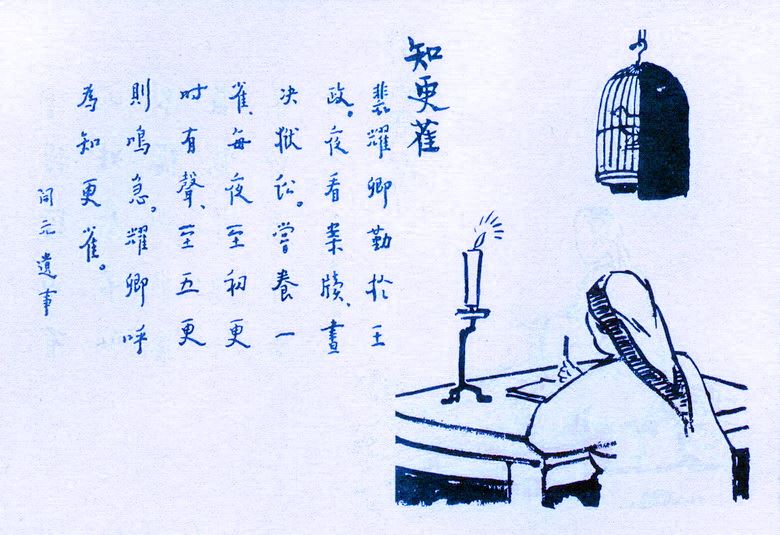 知更雀
裴耀卿勤於王
政。夜看案牘、晝
决狱訟。嘗養一
雀、每夜至初更
时有聲、至五更
則鳴急。耀卿呼
為知更雀。
開元遺事